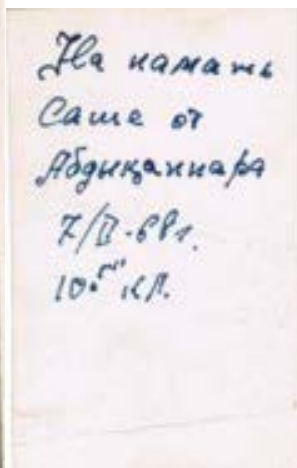 На память
Саше от
Абдыжаппара
7/II-68г.
10"б" кл.